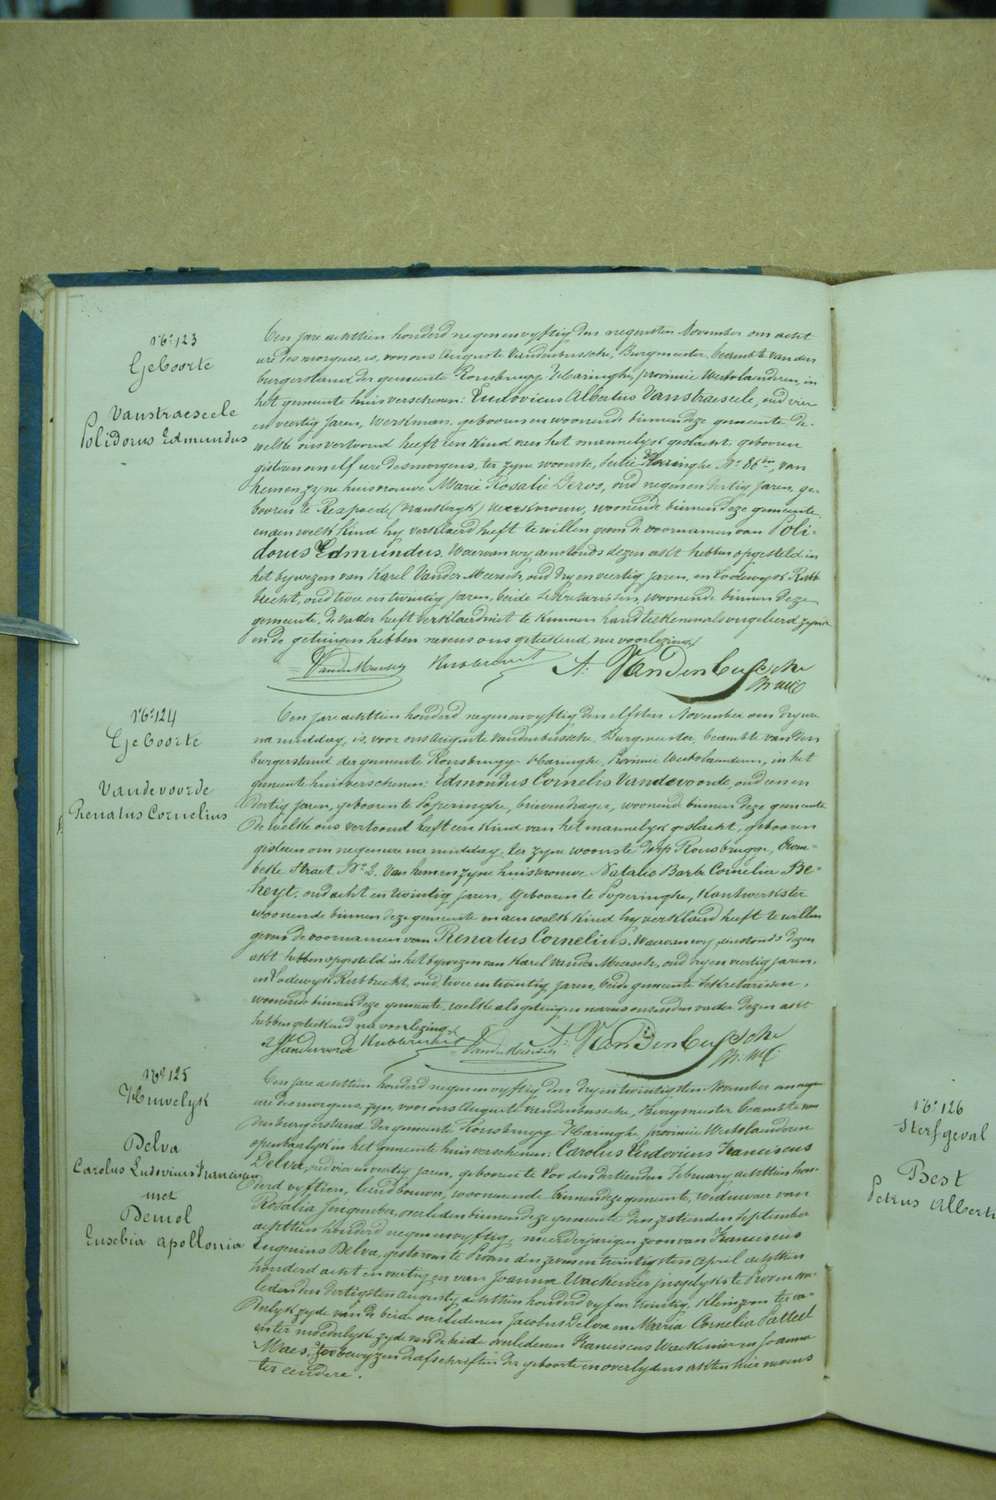 N° 123
Geboorte
Vanstraeseele
Polidorus Edmundus
Ten jare achttien honderd negenenvyftig den negensten November om acht
ure des morgens, is, voor ons Auguste Vandenbussche, Burgmeester, beambte van den
burgerstand der gemeente Rousbrugge Haringhe, provincie Westvlaanderen, in
het gemeente huis verschenen: Ludovicus Albertus Vanstraeseele, oud vier
en veertig jaren, werkman, geboren en woonende binnen deze gemeente de-
welke ons vertoond heeft een kind van het mannelyk geslacht, geboren
gisteren om elf ure des morgens, ter zyne woonste, sectie Haringhe N° 86, van
hem en zyne huisvrouwe Marie Rosalie Devos, oud negen en dertig jaren, ge-
boren te Rexpoede (Frankryk) werkvrouw, woonende binnen deze gemeente
en aen welk kind hy verklaerd heeft te willen geven de voornamen van Poli-
dorus Edmundus. Waervan wy aenstonds dezen akt hebben opgesteld in
het bywezen van Karel Vander Meersch, oud dry en veertig jaren, en Lodewyk Rubb-
brecht, oud twee en twintig jaren, beide Sekretarissen, woonende binnen deze
gemeente, de vader heeft verklaerd niet te kunnen handteekenen als ongeleerd zynde
en de getuigen hebben nevens ons geteekend, na voorlezing
VanderMeersch Rubbrecht A. Vandenbussche
N° 124
Geboorte
Vandevoorde
Renatus Cornelius
Ten jare achttien honderd negenenvyftig den elfsten November om dry ure
na middag, is, voor ons Auguste Vandenbussche, Burgmeester, beambte van den
burgerstand der gemeente Rousbrugge Haringhe, Provincie Westvlaanderen, in het
gemeente huis verschenen: Edmondus Cornelis Vandevoorde, oud een en
dertig jaren, geboren te Poperinghe, brievendrager, woonende binnen deze gemeente
de welke ons vertoond heeft een kind van het mannelyk geslacht, geboren
gisteren om negen ure na middag, ter zyne woonste dorp Rousbrugge, Crom-
beke Straet N° 2. Van hem en zyne huisvrouwe Natalie Barbe Cornelia Be-
heyt, oud acht en twintig jaren, geboren te Poperinghe, kantwerkster
woonende binnen deze gemeente en aen welk kind hy verklaerd heeft te willen
geven de voornamen van Renatus Cornelius. Waervan wy aenstonds dezen
akt hebben opgesteld in het bywezen van Karel Vander Meersch, oud dry en veertig jaren,
en Lodewyk Rubbrecht, oud twee en twintig jaren, beide gemeente Sekretarissen,
woonende binnen deze gemeente, welke als getuigen nevens ons en den vader dezen akt
hebben geteekend na voorlezing
Vandevoorde Rubbrecht VanderMeersch A. Vandenbussche
N° 125
Huwelyk
Delva
Carolus Ludovicus Franciscus
met
Demol
Eusebia apollonia
Ten jare achttien honderd negenenvyftig den dry en twintigsten November om negen
ure des morgens, zyn, voor ons Auguste Vandenbussche, Burgmeester beambte van
den burgerstand der gemeente Rousbrugge Haringhe provincie Westvlaanderen
openbaerlyk in het gemeente huis verschenen: Carolus Ludovicus Franciscus
Delva, oud vier en veertig jaren, geboren te den dertienden February achttien hon-
derd vyftien, landbouwer, woonende binnen deze gemeente, weduwaer van
Rosalia, overleden binnen deze gemeente den zestienden September
achttien honderd negenenvyftig, meerderjarigen zoon van Franciscus
Eugenius Delva, gestorven te Proven den zeven en twintigsten April achttien
honderd acht en veertig en van Joanna Wackenier insgelyks te Proven over-
leden den dertigsten Augusty achttien honderd vyf en twintig, kleinzoon ter va-
derlyke zyde van de beide overledenen Jacobus Delva en Maria Cornelia Patteel
en ter moederlyke zyde van de beide overledenen Franciscus Wackenier en Joanna
Maes, zoo bewyzen de afschriften der geboorte en overlydens akten hier nevens
ter eendere.
N° 126
Sterfgeval
Best
Petrus Albert